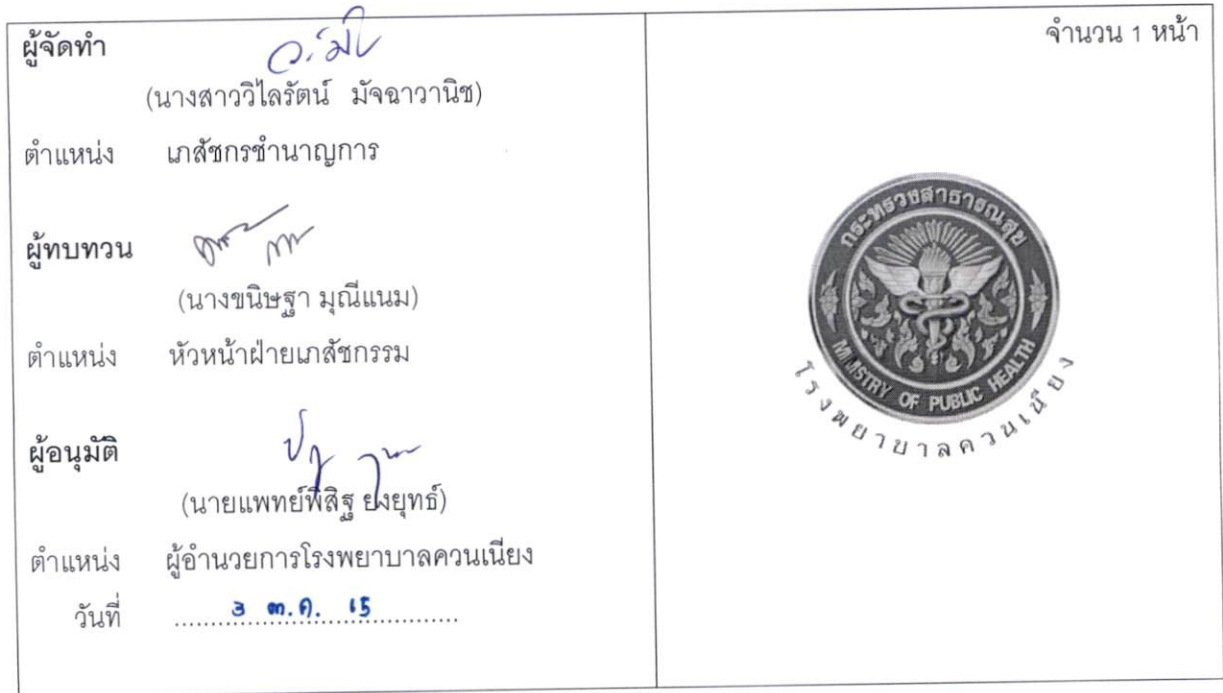 ผู้จัดทำ
(นางสาววิไลรัตน์ มัจฉาวานิช)
ตำแหน่ง เภสัชกรชำนาญการ
ผู้ทบทวน
(นางขนิษฐา มุณีแนม)
ตำแหน่ง หัวหน้าฝ่ายเภสัชกรรม
ผู้อนุมัติ
(นายแพทย์พิสิฐ ยงยุทธ์)
ตำแหน่ง ผู้อำนวยการโรงพยาบาลควนเนียง
วันที่ 3 ต.ค. 15
จำนวน 1 หน้า
กระทรวงสาธารณสุข
MINISTRY OF PUBLIC HEALTH
โรงพยาบาลควนเนียง